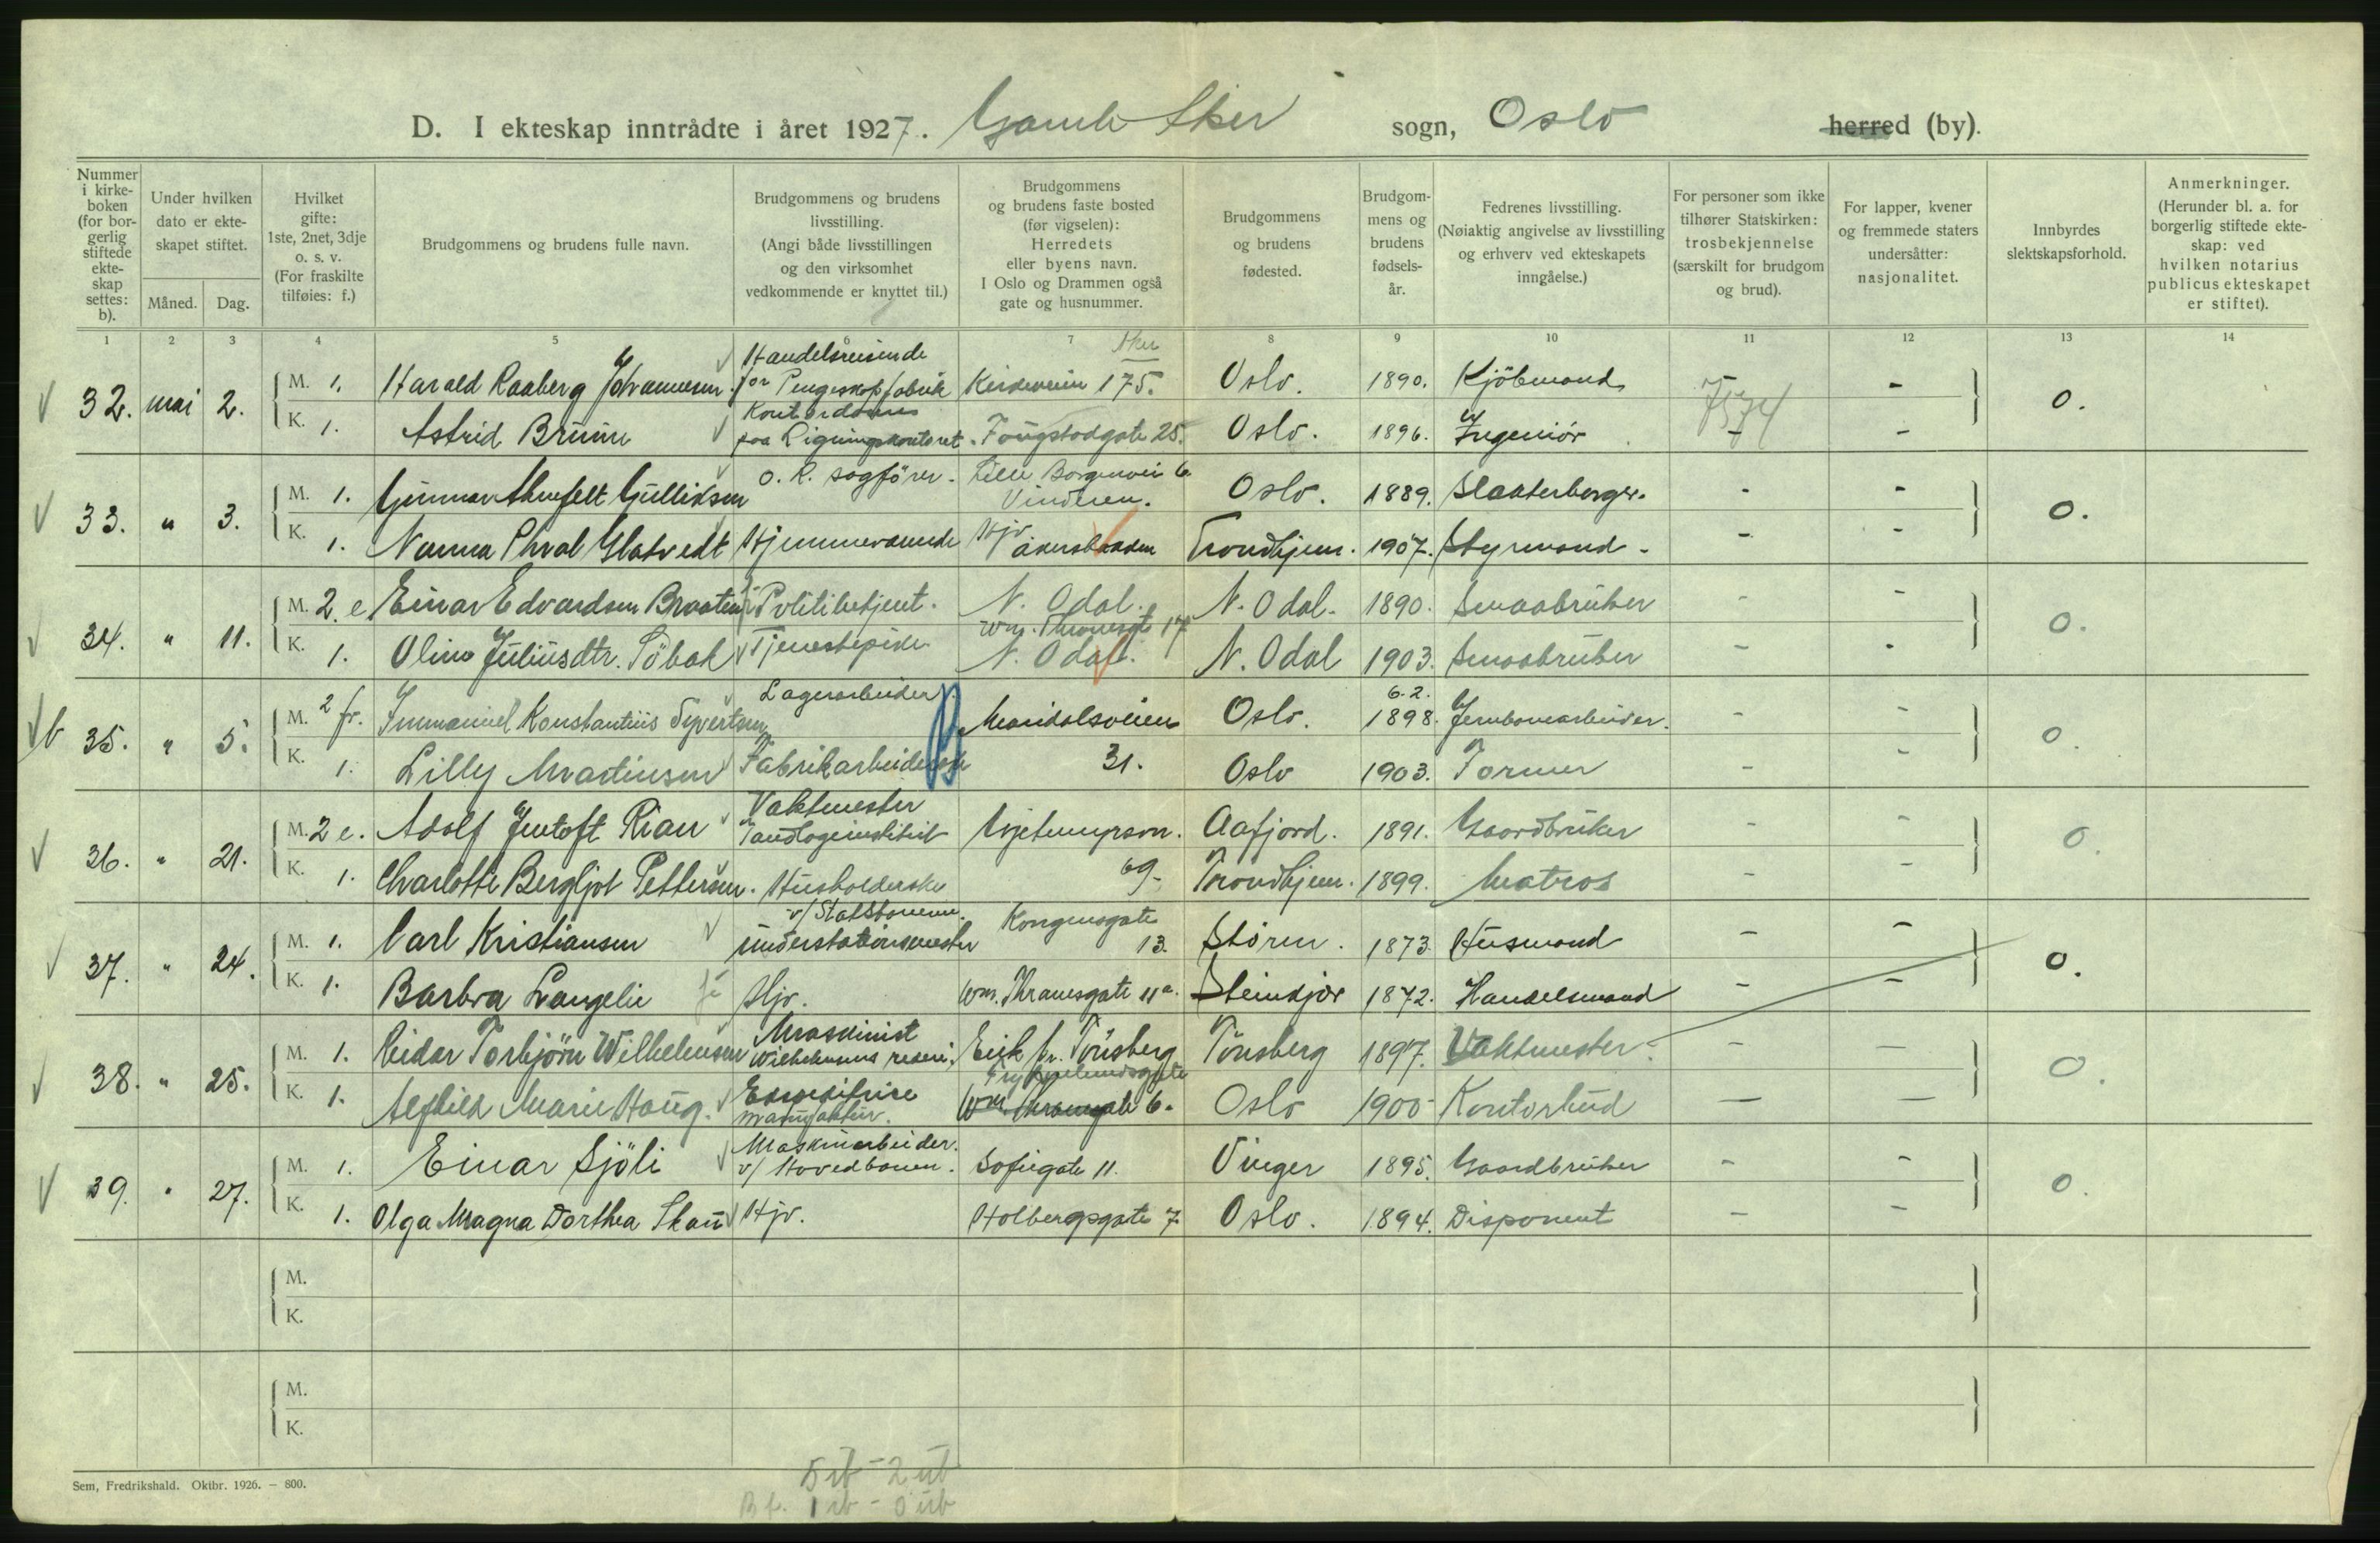 D. I ekteskap inntrådte i året 1927. Gamle Aker sogn, Oslo herred (by).
Nummer i kirkeboken (for borgerlig stiftede ekteskap settes: b).
Under hvilken dato er ekteskapet stiftet.
Måned. Dag.
Hvilket gifte: 1ste, 2net, 3dje o. s. v. (For fraskilte tilføies: f.)
Brudgommens og brudens fulle navn.
Brudgommens og brudens livsstilling. (Angi både livsstillingen og den virksomhet vedkommende er knyttet til.)
Brudgommens og brudens faste bosted (før vigselen): Herredets eller byens navn. I Oslo og Drammen også gate og husnummer.
Brudgommens og brudens fødested.
Brudgommens og brudens fødselsår.
Fedrenes livsstilling. (Nøiaktig angivelse av livsstilling og erhverv ved ekteskapets inngåelse.)
For personer som ikke tilhører Statskirken: trosbekjennelse (særskilt for brudgom og brud).
For lapper, kvener og fremmede staters undersåtter: nasjonalitet.
Innbyrdes slektskapsforhold.
Anmerkninger. (Herunder bl. a. for borgerlig stiftede ekteskap: ved hvilken notarius publicus ekteskapet er stiftet).
1 2 3 4 5 6 7 8 9 10 11 12 13 14
32. mai 2. M. 1. Harald Raaberg Johannesen. Handelsreisende for Pengeskapfabrik Kirkeveien 175. Aker Oslo. 1890. Kjöbmand - 0.
K. 1. Astrid Bruun Kontordame paa Ligningskontoret. Fougstadgate 25. Oslo. 1896. Ingeniör. - -
7574
33. " 3. M. 1. Gunnar Gulliksen O. R. sagförer. Lille Borgenvei 6 Vinderen. Oslo. 1889. - - 0.
K. 1. Nanna Glatvedt Hjemmeværende Hjv Trondhjem. 1907. Styrmand. - -
34. " 11. M. 2. e Einar Edvardsen Braaten Politibetjent. N. Odal. N. Odal. 1890. Smaabruker - - 0.
K. 1. Oline Juliusdtr. Söbak Tjenestepike Wm. Thranesgt 17 N. Odal. N. Odal 1903. Smaabruker - -
b 35. " 5. M. 2 fr. Immanuel Konstantius Syvertsen Lagerarbeider. Maridalsveien Oslo. 6.2. 1898. Jernbanearbeider. - - 0.
K. 1. Lilly Martinsen Fabrikarbeiderske 31. Oslo 1903. Former - -
36. " 21. M. 2 e. Adolf Jentoft Rian Vaktmester Tandlægeinstitut Uelandsgt. Aafjord. 1891. Gaardbruker - - 0.
K. 1. Charlotte Bergljot Pettersen. Husholderske 69. Trondhjem. 1899. Matros - -
37. " 24. M. 1. Carl Kristiansen v/ Statsbanene. understationsmester Kongensgate 13. Stören. 1873. Husmand - - 0.
K. 1. Barbra Langelie Hjv. Wm. Thranesgate 11a. Steinkjær 1872. Handelsmand - -
38. " 25. M. 1. Reidar Torbjörn Wilhelmsen Maskinist Wilhelmsens rederi, Eik pr. Tönsberg Tönsberg 1897. Vaktmester - - 0.
K. 1. Alfhild Marie Haug. Expeditrise manufaktur. Wm Thranesgate 6. Oslo 1900 Kontorbud - -
39. " 27. M. 1. Einar Sjöli Maskinarbeider. v/ Hovedbanen. Sofiegate 11. Vinger 1895. Gaardbruker - - 0.
K. 1. Olga Magna Dorthea Skau Hjv. Holbergsgate 7 Oslo. 1894. Disponent - -
M.
K.
M.
K.
Sem, Fredrikshald. Oktbr. 1926. — 800.
5 ib - 2 ub
B f. 1 ib - 0 ub